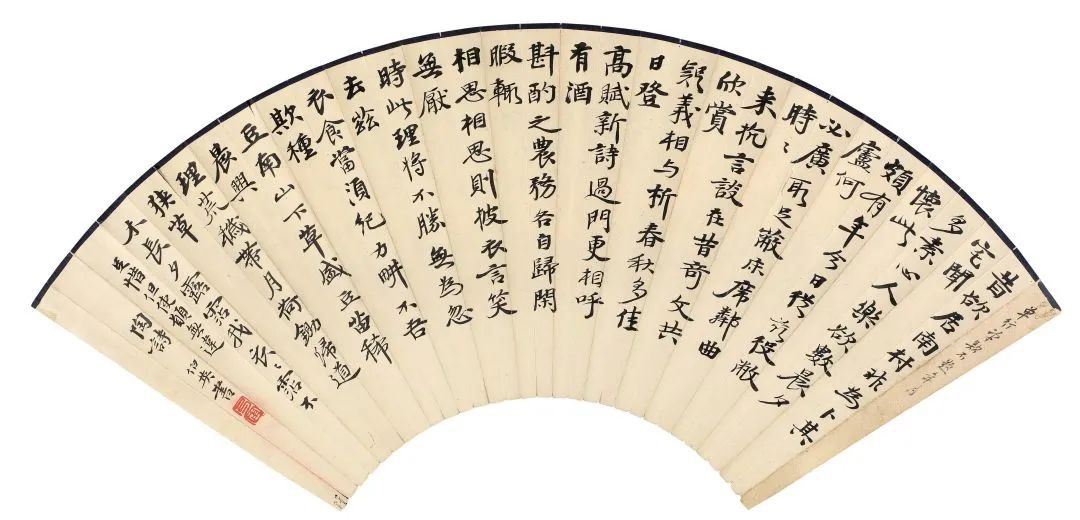 昔欲居南村非為卜其
宅聞
多素心人樂欲數晨夕
懷此
頗有年今日從茲役敝
廬何
必廣取足蔽床席鄰曲
時〻
来抗言談在昔奇文共
欣賞
疑義相与析春秋多佳
日登
高賦新詩過門更相呼
有酒
斟酌之農務各自歸閑
暇輒
相思相思則披衣言笑
無厭
時此理將不勝無為忽
去茲
衣食當須紀力畊不吾
欺種
豆南山下草盛豆苗稀
晨興
理荒穢帶月荷鋤歸道
狹草
木長夕露霑我衣〻霑不
足惜但使願無違
陶詩 伯英書